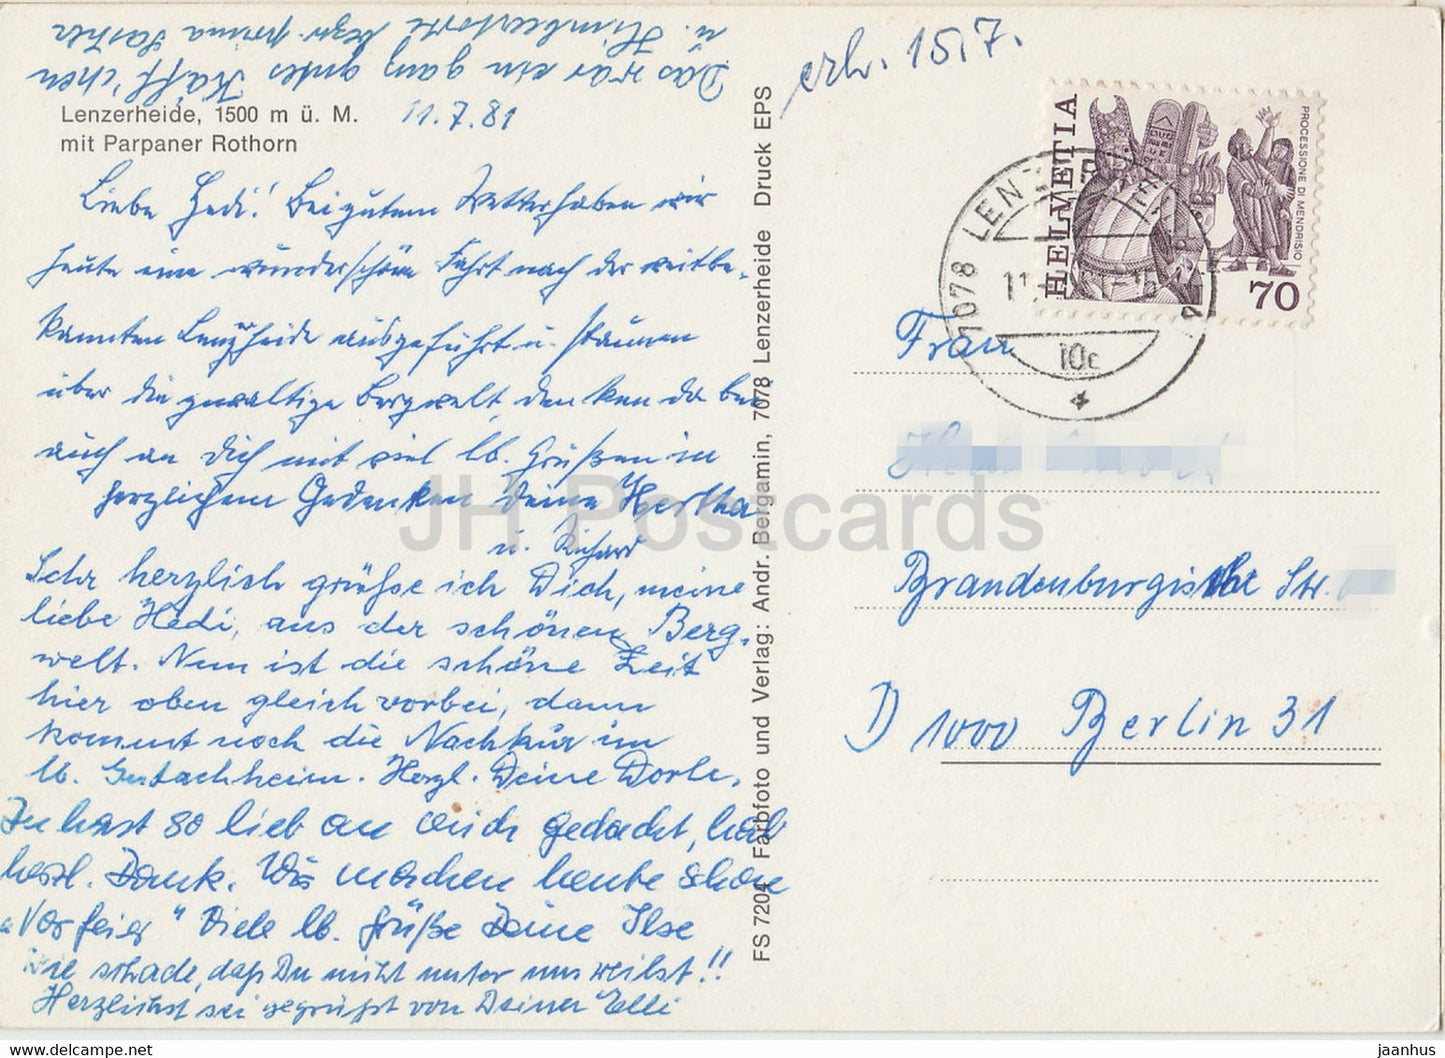 Das war ein ganz gutes Käff'chen
u. Himbeertorte prima Sache
Lenzerheide, 1500 m ü. M.
mit Parpaner Rothorn
11.7.81
Liebe Hedi! Bei gutem Wetter haben wir
heute eine wunderschöne Fahrt nach der weitbe-
kannten Lenzerheide ausgeführt u. staunen
über die gewaltige Bergwelt, denken dabei
auch an Dich mit viel lb. Grüßen in
herzlichem Gedenken Deine Hertha
u. Richard
Sehr herzlich grüße ich Dich, meine
liebe Hedi, aus der schönen Berg-
welt. Nun ist die schöne Zeit
hier oben gleich vorbei, dann
kommt noch die Nachkur im
lb. Gutachheim. Herzl. Deine Dorle.
Du hast so lieb an mich gedacht, hab
herzl. Dank. Wir machen heute schon
"Vorfeier" Viele lb. Grüße Deine Ilse
Wie schade, daß Du nicht unter uns weilst!!
Herzlichst sei gegrüßt von Deiner Elli
FS 7204 Farbfoto und Verlag: Andr. Bergamin, 7078 Lenzerheide Druck EPS
erh. 15.7.
HELVETIA
PROCESSIONE DI MENDRISIO
70
7078 LENZERHEIDE
11
10c
Frau
Brandenburgische Str.
D 1000 Berlin 31
JH Postcards
www.delcampe.net
jaanhus